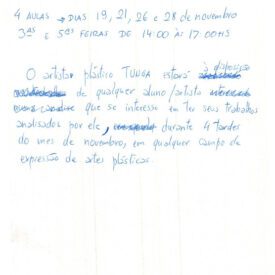 4 AULAS → DIAS 19, 21, 26 e 28 de novembro
3ªs e 5ªs FEIRAS DE 14:00 às 17:00HS
O artista plástico TUNGA estará à disposição
de qualquer aluno/artista
que se interesse em ter seus trabalhos
analisados por ele, durante 4 tardes
do mes de novembro, em qualquer campo de
expressão de artes plásticas.